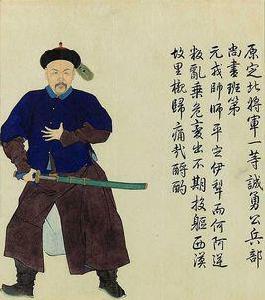 原定北將軍一等誠勇公兵部
尚書班第
元戎帥師平定伊犁而何阿逆
叛亂乗危變出不期投軀西漠
故里櫬歸痛哉酹酌